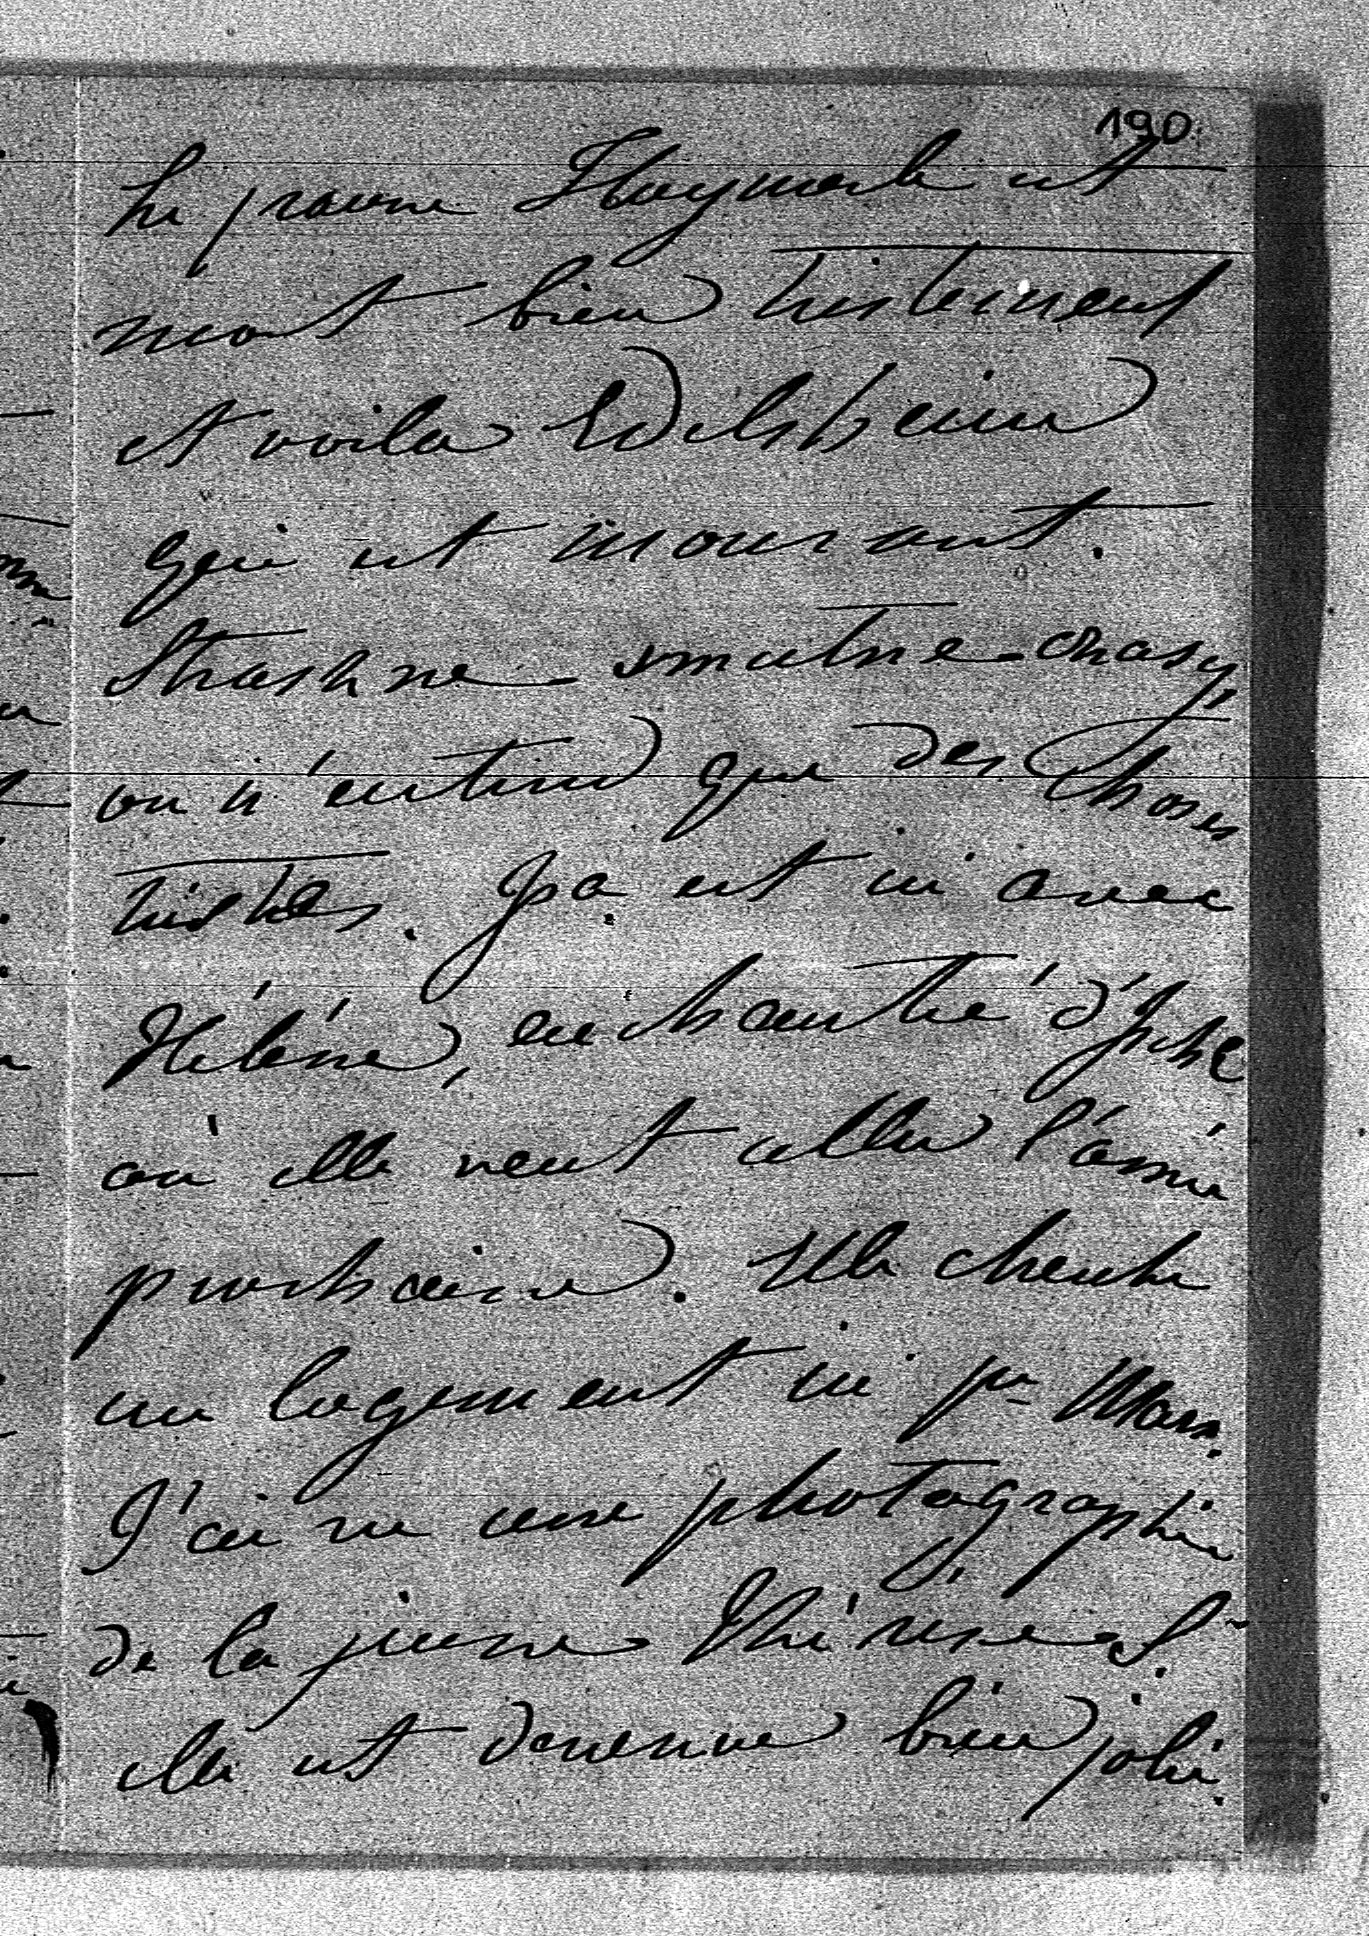 190
Le pauvre Haymerle est
mort bien tristement
et voila Edelsheim
qui est mourant.
Strashne smutne chasy,
on n'entend que des choses
tristes. Iza est ici avec
Hélène, enchantée d'Ischl
où elle veut aller l'année
prochaine. Elle cherche
un logement ici pr Mars.
J'ai vu une photographie
de la jeune Thérèse S.
elle est devenue bien jolie.